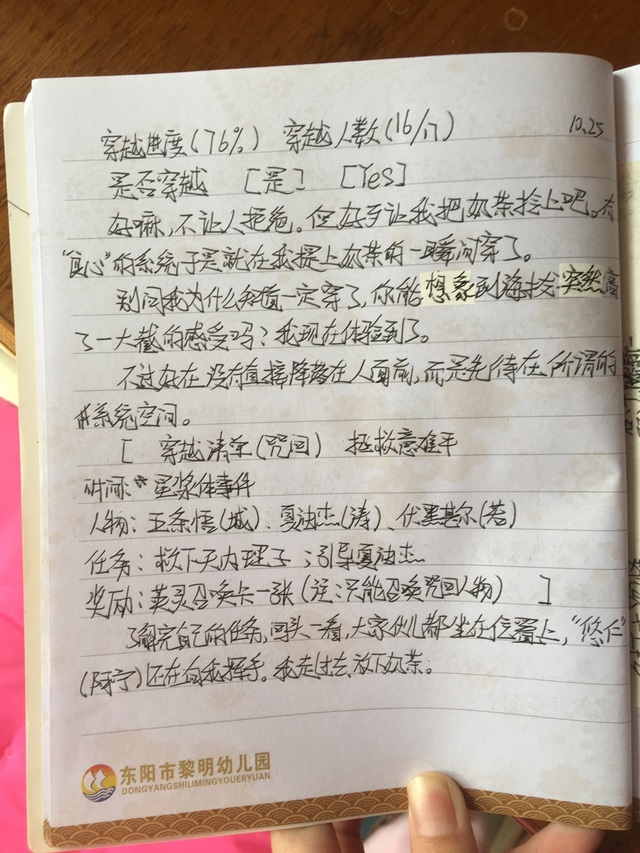 穿越进度(76%) 穿越人数(16/17) 10.25
是否穿越 [是] [Yes]
好嘛,不让人拒绝。但好歹让我把奶茶拎上吧。有
“良心”的系统于是就在我提上奶茶的一瞬间穿了。
别问我为什么知道一定穿了,你能想象到海拔突然高
了一大截的感受吗?我现在体验到了。
不过好在没有直接降落在人面前,而是先待在所谓的
系统空间。
[ 穿越清单(咒回) 拯救意难平
时间:星浆体事件
人物:五条悟(城)、夏油杰(涛)、伏黑甚尔(若)
任务:救下天内理子;引导夏油杰
奖励:英灵召唤卡一张(注:只能召唤咒回人物) ]
了解完自己的任务,回头一看,大家伙儿都坐在位置上,“悠仁”
(阿宁)还在向我挥手。我走过去,放下奶茶。
东阳市黎明幼儿园
DONGYANGSHILIMINGYOUERYUAN